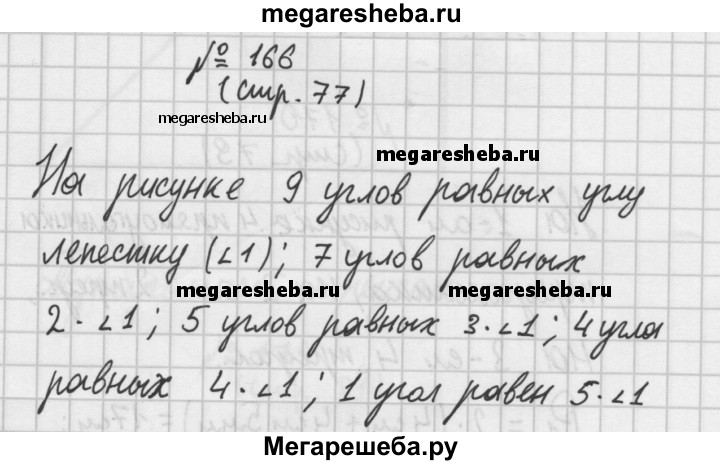 megaresheba.ru
№ 166
(стр. 77)
megaresheba.ru
megaresheba.ru
На рисунке 9 углов равных углу
лепестку (∠1); 7 углов равных
megaresheba.ru megaresheba.ru
2·∠1; 5 углов равных 3·∠1; 4 угла
равных 4·∠1; 1 угол равен 5·∠1
Мегарешеба.ру